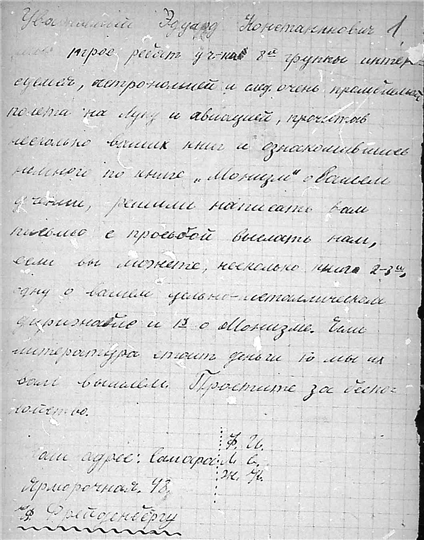 Уважаемый Эдуард Константинович 1
трое ребят уч-ков 8ой группы интер-
есуемся, астрономией и след. очень проблемой
полета на Луну и авиацией, прочитав
несколько ваших книг и ознакомившись
немного по книге „Монизм" о вашем
учении, решили написать вам
письмо с просьбой выслать нам,
если вы можете, несколько книг 2-3 ш,
одну о вашем цельно-металлическом
дирижабле и 1у о Монизме. Если
литература стоит деньги то мы их
вам вышлем. Простите за беспо-
койство.
Наш адрес: Самара
Ярморочная, 48,
Фрейденбергу
Ф. И.
Л. С.